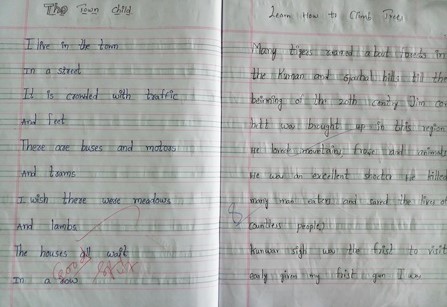 The Town Child
I live in the town
In a street
It is crowded with traffic
And feet
There are buses and motors
And trams
I wish there were meadows
And lambs
The houses all wait
In a row
Good
Learn How to Climb Trees
Many tigers roared about forests in
the Kumaon and hills til the
beinning of the 20th century Jim cor
bett was brought up in this region
He loved mountains and animals
He was an excellent shooter He killed
many man eaters and saved the lives of
countless people
Kunwar sigh was the frist to visit
early gives my frist gun I was